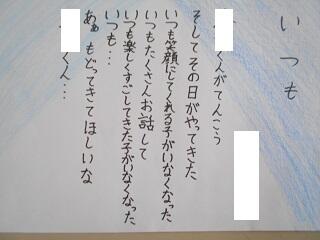 いつも
くんがてんこう
そしてその日がやってきた
いつも笑顔にしてくれる子がいなくなった
いつもたくさんお話して
いつも楽しくすごしてきた子がいなくなった
いつも…
あぁもどってきてほしいな
くん…